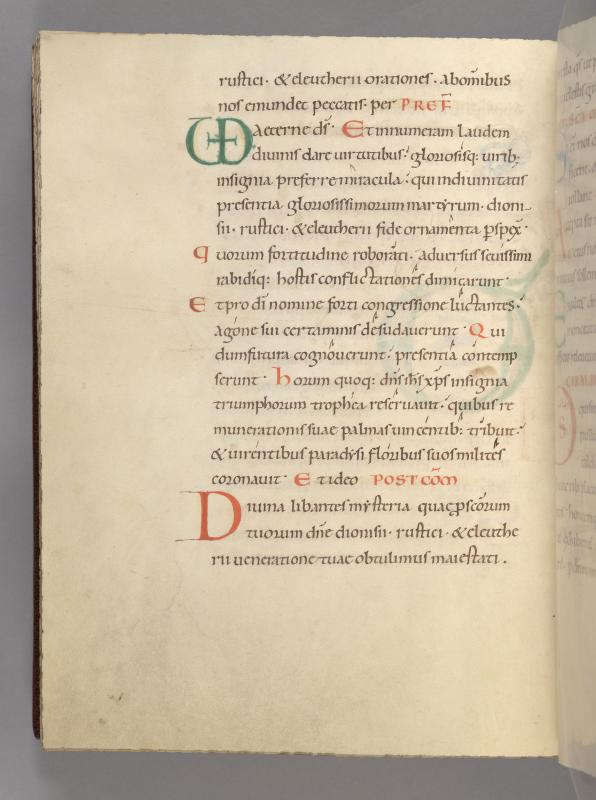 rustici · & eleutherii orationes · ab omibus
nos emundet peccatis · per PREF
VD aeterne ds · Et innumeram laudem
diuinis dare uirtutibus · gloriosisq: uirib;
insignia preferre miracula · qui in diuinitatis
presentia gloriosissimorum martyrum · dioni-
sii · rustici · & eleutherii fide ornamenta pspex ·
quorum fortitudine roborati · aduersus seuissimi
rabidiq: hostis conflictationes dimicarunt ·
Et pro di nomine forti congressione luctantes ·
agone sui certaminis desudauerunt · Qui
dum futura cognouerunt · presentia contemp
serunt · horum quoq: dns ihs xps insignia
triumphorum trophea reseruauit · quibus re
munerationis suae palmas uincentib: tribuit ·
& uirentibus paradysi floribus suos milites
coronauit · Et ideo POSTCOM
Diuina libantes mysteria quae p scorum
tuorum dne dionisii · rustici · & eleuthe
rii ueneratione tuae obtulimus maiestati .